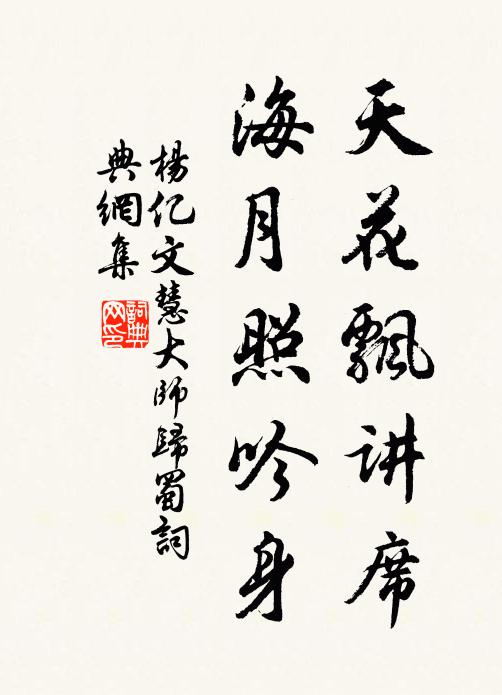 天花飄讲席
海月照吟身
楊亿文慧大师歸蜀詞
典網集
詞典
网印